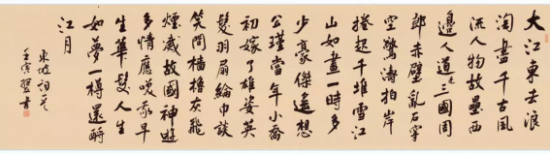 大江東去浪
淘盡千古風
流人物故壘西
邊人道是三國周
郎赤壁亂石穿
空驚濤拍岸
捲起千堆雪江
山如畫一時多
少豪傑遙想
公瑾當年小喬
初嫁了雄姿英
髮羽扇綸巾談
笑間檣櫓灰飛
煙滅故國神遊
多情應笑我早
生華髮人生
如夢一樽還酹
江月
東坡詞
壬寅